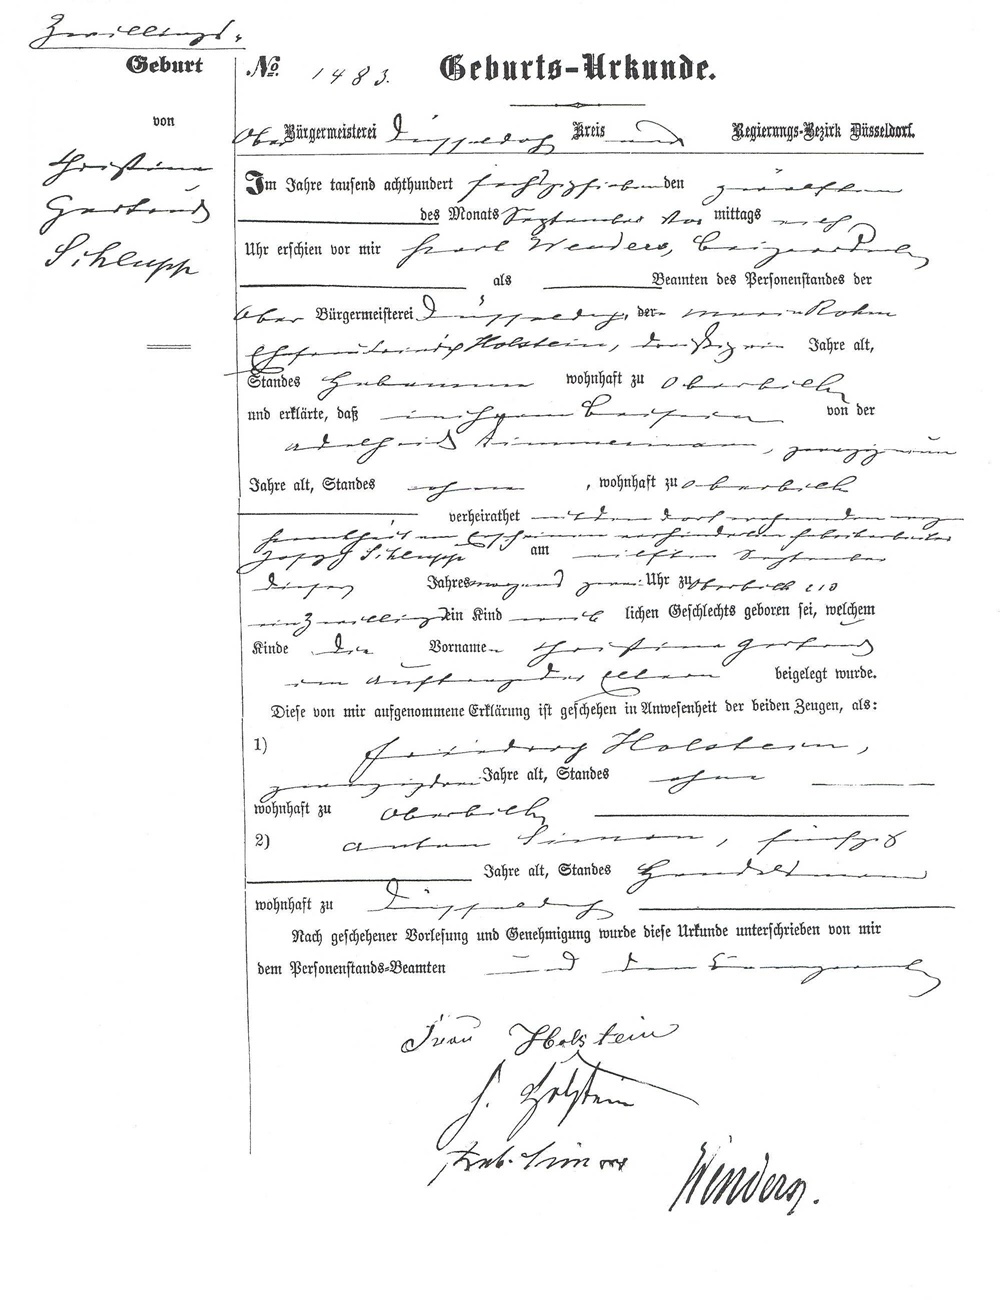 Zwillings-
Geburt
von
Christina
Gertrud
Schlupp
No. 1483. Geburts-Urkunde.
Ober Bürgermeisterei Düsseldorf Kreis Regierungs-Bezirk Düsseldorf.
Im Jahre tausend achthundert sechszigsieben den zwölften
des Monats September Vor mittags elf
Uhr erschien vor mir Karl Wenders, Beigeordneter
als Beamten des Personenstandes der
Ober Bürgermeisterei Düsseldorf, der Maria Rohm
Ehefrau Holstein, dreißigein Jahre alt,
Standes Hebamme wohnhaft zu Oberbilk
und erklärte, daß in ihrem Beisein von der
Adelheid Zimmermann, zwanzigneun
Jahre alt, Standes ohne , wohnhaft zu Oberbilk
verheirathet mit dem dort wohnenden wegen
Krankheit am Erscheinen verhinderten Fabrikarbeiter
Joseph Schlupp am elften September
dieses Jahres morgens zwei Uhr zu Oberbilk
ein Zwilling ein Kind weib lichen Geschlechts geboren sei, welchem
Kinde die Vornamen Christina Gertrud
im Auftrag der Eltern beigelegt wurde.
Diese von mir aufgenommene Erklärung ist geschehen in Anwesenheit der beiden Zeugen, als:
1) Friedrich Holstein,
zwanzigdrei Jahre alt, Standes ohne
wohnhaft zu Oberbilk
2) Anton Simon, fünfzig
Jahre alt, Standes Handelsmann
wohnhaft zu Düsseldorf
Nach geschehener Vorlesung und Genehmigung wurde diese Urkunde unterschrieben von mir
dem Personenstands-Beamten und den
Frau Holstein
F. Holstein
Ant. Simon
Wenders.